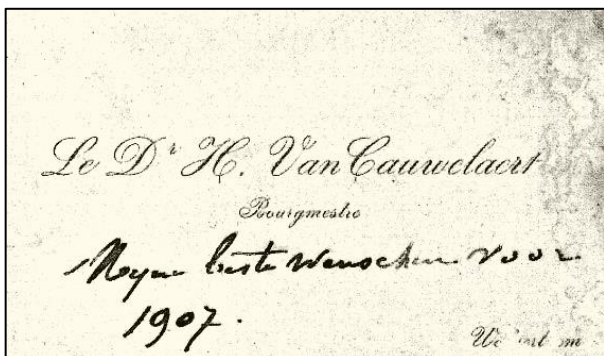 Le Dr H. Van Cauwelaert
Bourgmestre
Myne beste Wenschen voor
1907.